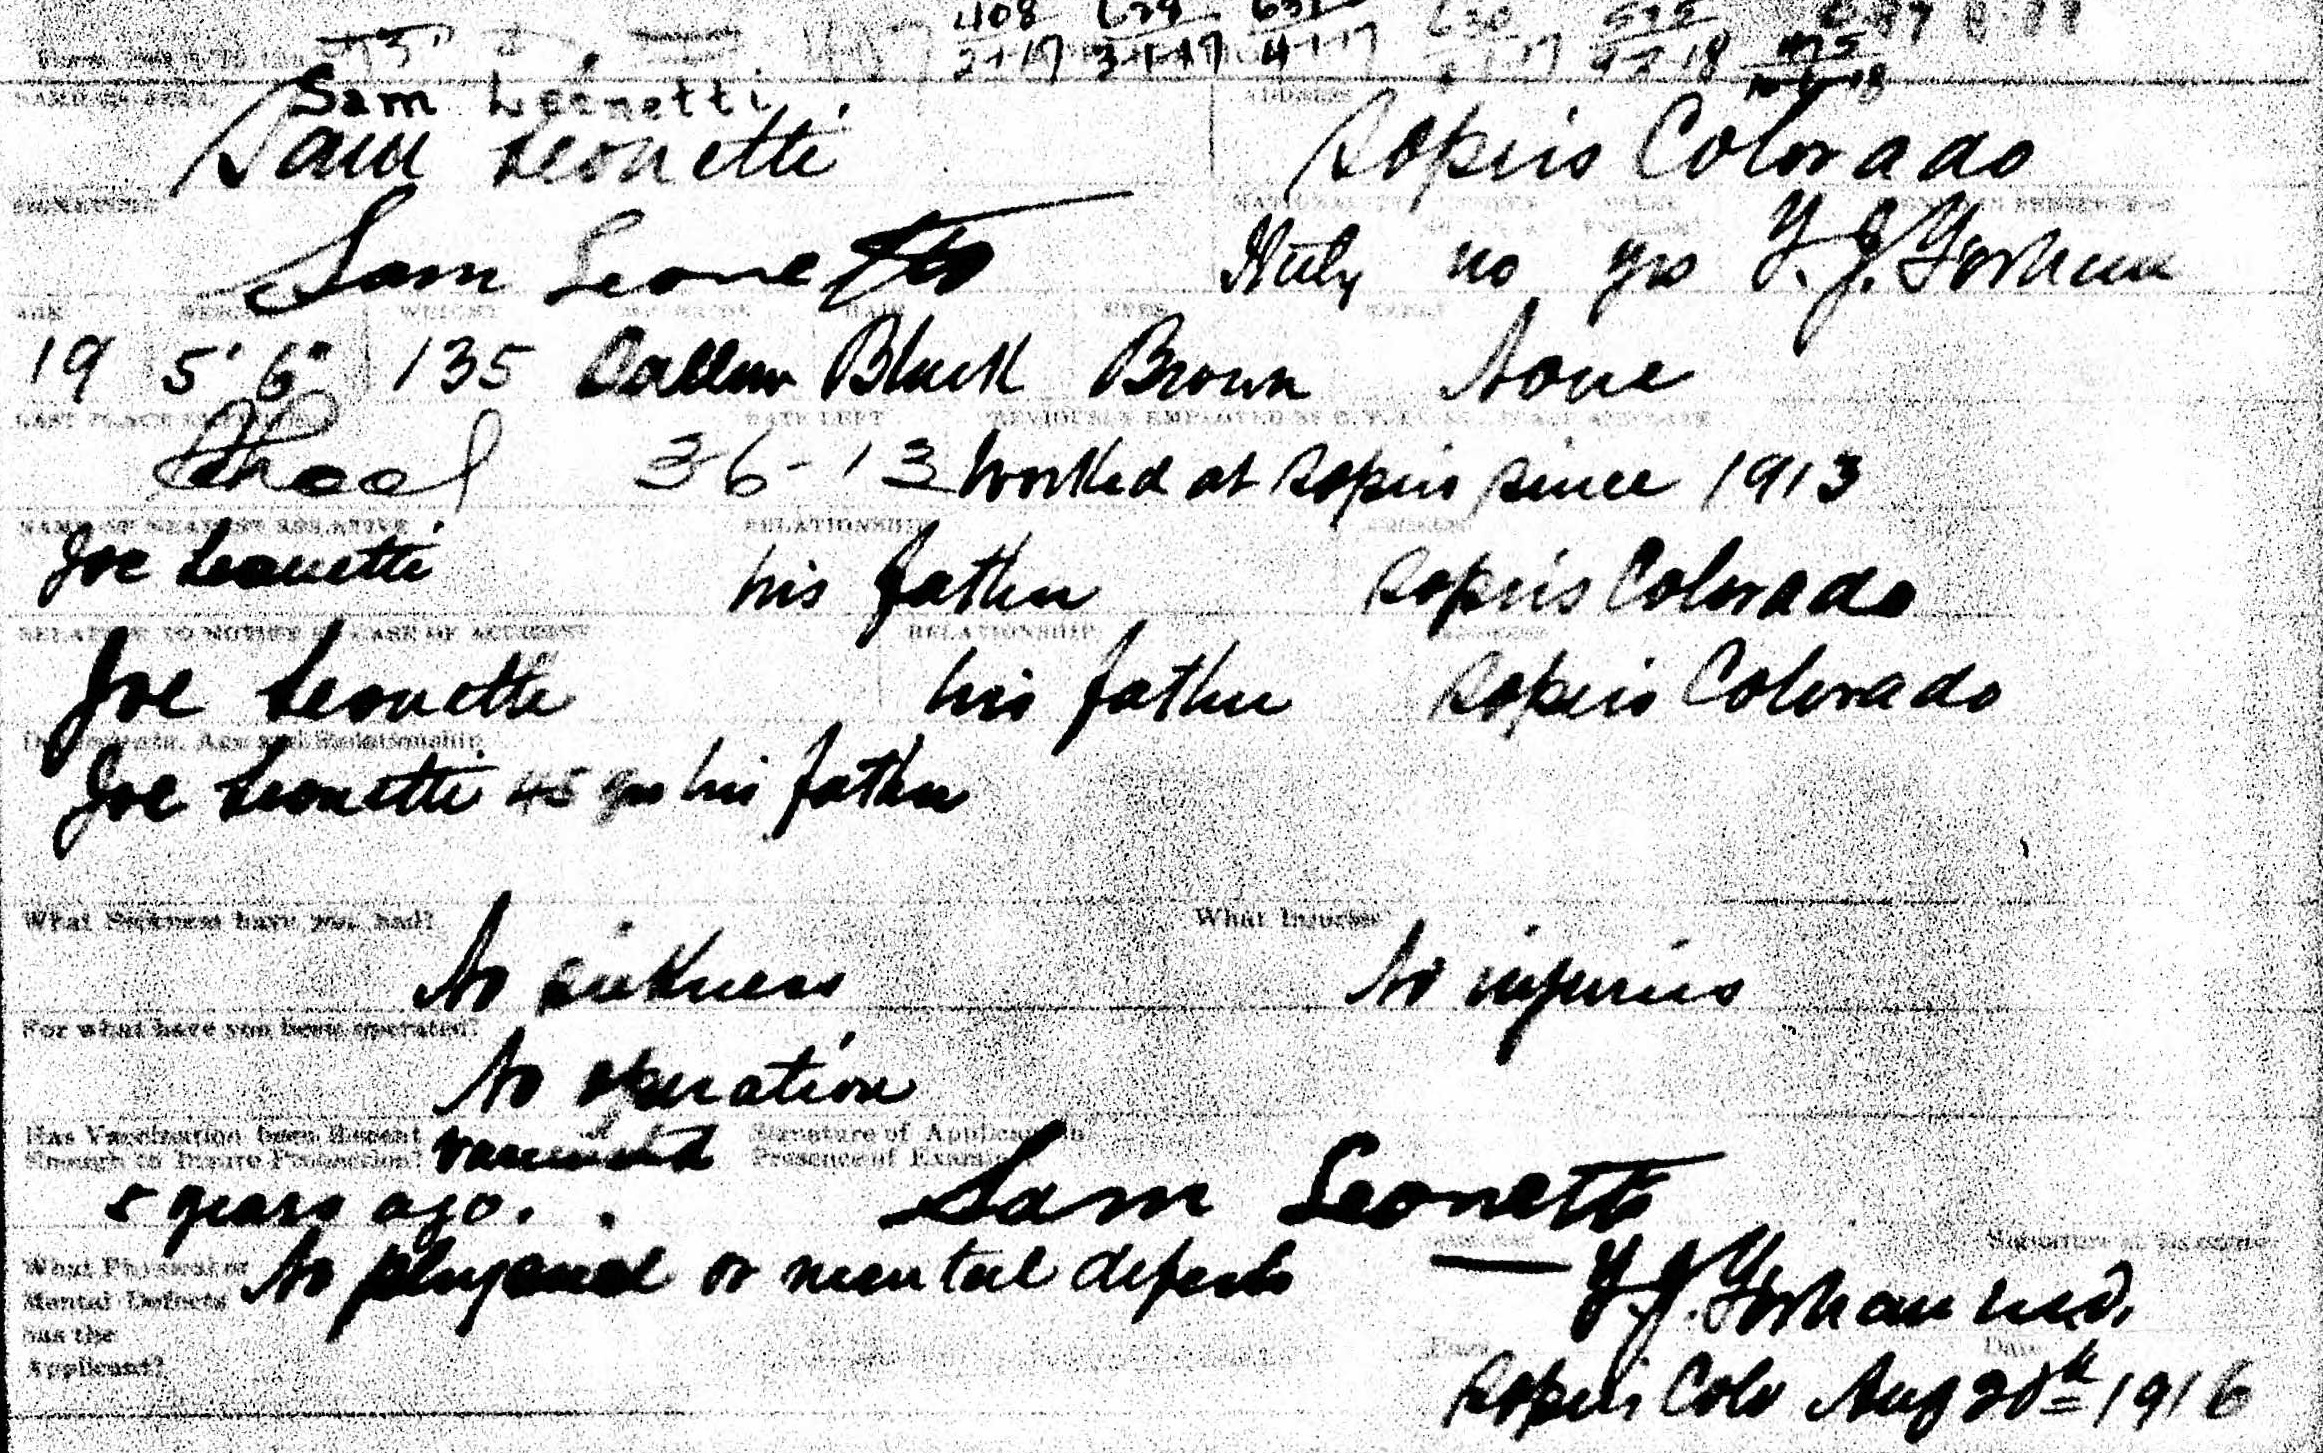 408 629 631 630 575
2-1-17 3-1-17 4-1-17 9-2-18 475
Sam Leonetti
NAME IN FULL ADDRESS
Sam Leonetti Sopris Colorado
SIGNATURE
Sam Leonetti Italy no yes T. J. Forhan
AGE HEIGHT WEIGHT HAIR EYES
19 5' 6" 135 Sallow Black Brown None
LAST PLACE DATE LEFT PREVIOUSLY EMPLOYED BY
School 3-6-13 Worked at Sopris since 1913
NAME OF NEAREST RELATIVE RELATIONSHIP ADDRESS
Joe Leonetti his father Sopris Colorado
RELATIVE TO NOTIFY IN CASE OF ACCIDENT RELATIONSHIP ADDRESS
Joe Leonetti his father Sopris Colorado
Dependents, Age and Relationship
Joe Leonetti 45 yrs his father
What Sickness have you had? What Injuries
No sickness No injuries
For what have you been operated?
No operation
Has Vaccination been Recent vaccinated Signature of Applicant in
Enough to Insure Protection? Presence of Examiner
5 years ago. Sam Leonetti
Signature of Examiner
What Physical or No physical or mental defects T. J. Forhan M.D.
Mental Defects
has the Place Date
Applicant?
Sopris Colo Aug 20th 1916